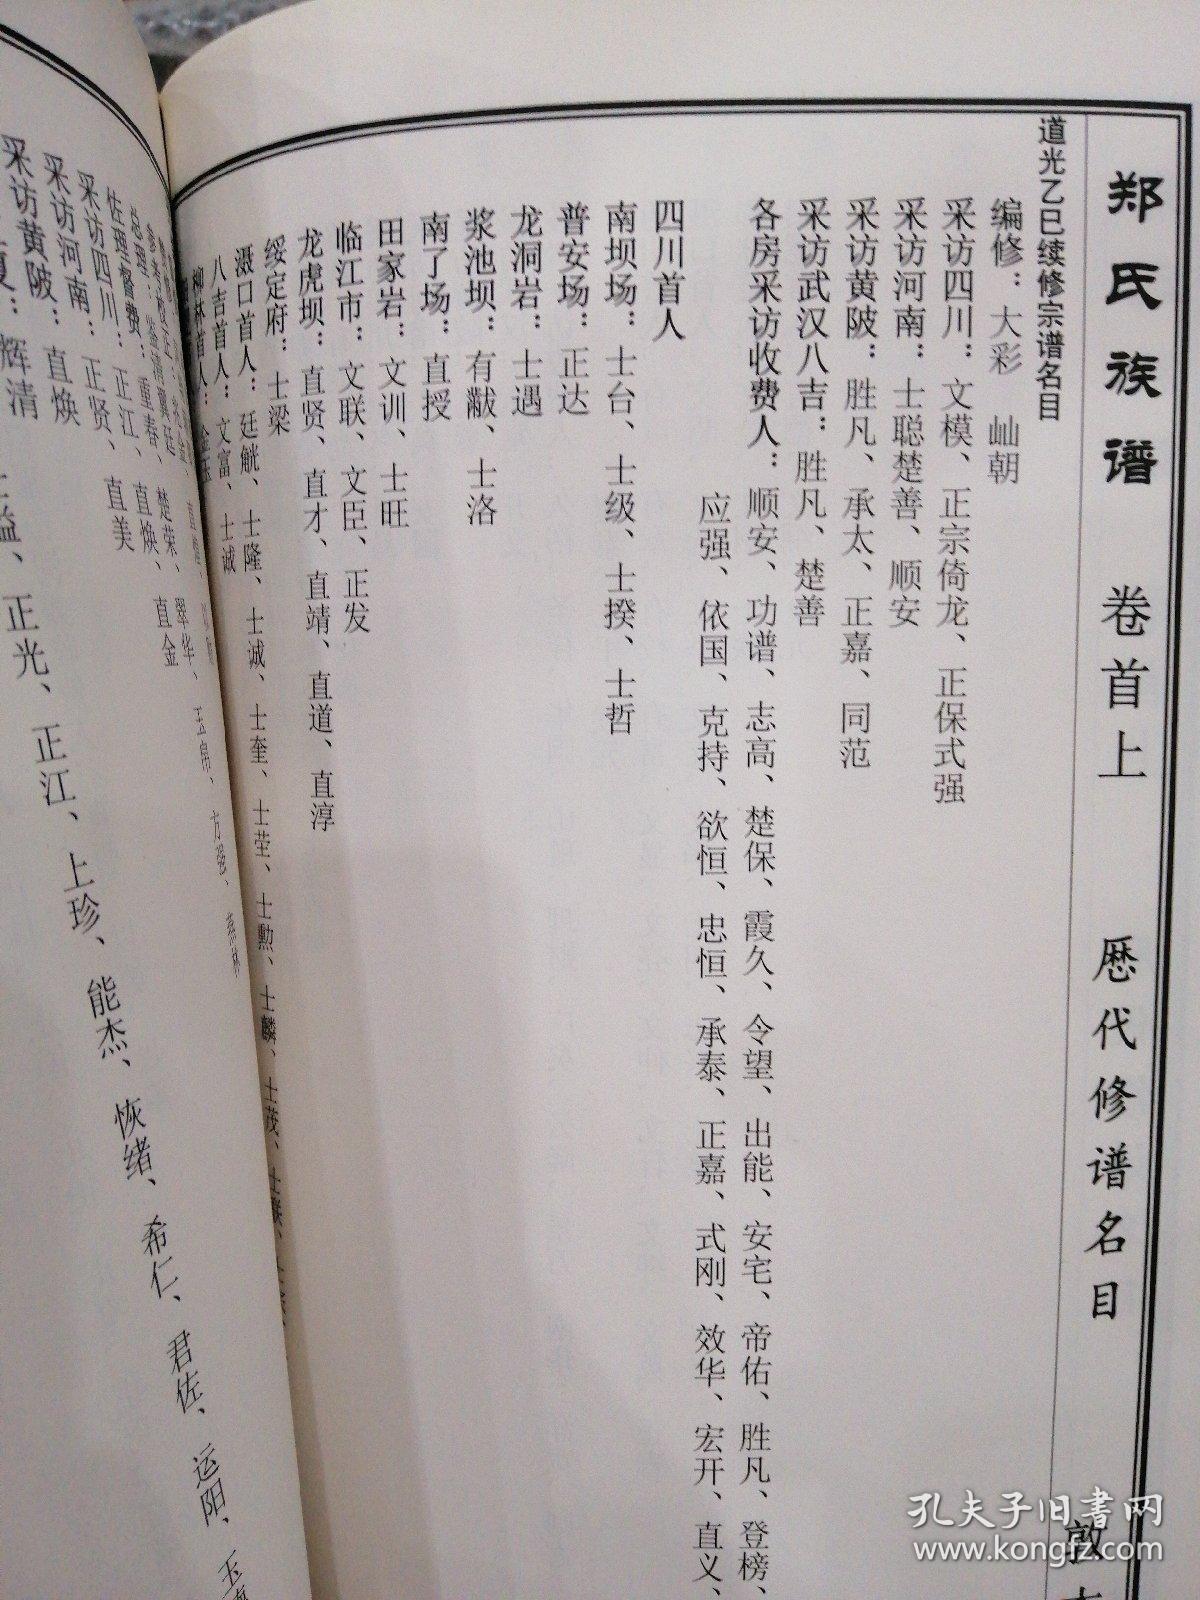 郑氏族谱 卷首上 歷代修谱名目 敦
道光乙巳续修宗谱名目
编修：大彩 屾朝
采访四川：文模、正宗倚龙、正保式强
采访河南：士聪楚善、顺安
采访黄陂：胜凡、承太、正嘉、同范
采访武汉八吉：胜凡、楚善
各房采访收费人：顺安、功谱、志高、楚保、霞久、令望、出能、安宅、帝佑、胜凡、登榜、
应强、依国、克持、欲恒、忠恒、承泰、正嘉、式刚、效华、宏开、直义、
四川首人
南坝场：士台、士级、士揆、士哲
普安场：正达
龙洞岩：士遇
浆池坝：有黻、士洛
南了场：直授
田家岩：文训、士旺
临江市：文联、文臣、正发
龙虎坝：直贤、直才、直靖、直道、直淳
绥定府：士梁
滠口首人：廷觥、士隆、士诚、士奎、士莹、士勲、士麟、士茂、士联、
八吉首人：文富、士诚
柳林首人：金玉
总理：
佐理督费：重春、楚荣、翠华、玉席、方强、燕林
采访四川：正江、直焕、直金
采访河南：正贤、直美
采访黄陂：直焕
辉清
正光、正江、上珍、能杰、恢绪、希仁、君佐、运阳、玉
孔夫子旧书网
www.kongfz.com